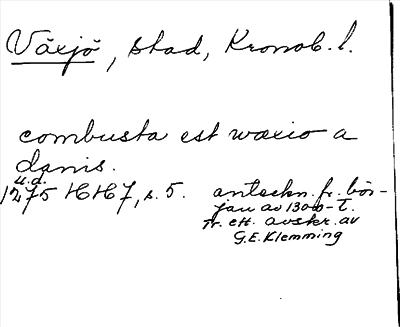 Växjö, stad, Kronob. l.
combusta est wæxio a
danis.
u.d.
1275 HH7, s. 5. anteckn. fr. bör-
jan av 1300-t.
Tr. eft. avskr. av
G.E. Klemming